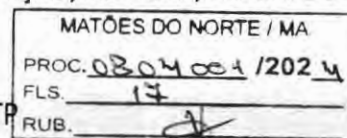 MATÕES DO NORTE / MA
PROC. 0804001 /2024
FLS. 17
TP
RUB.